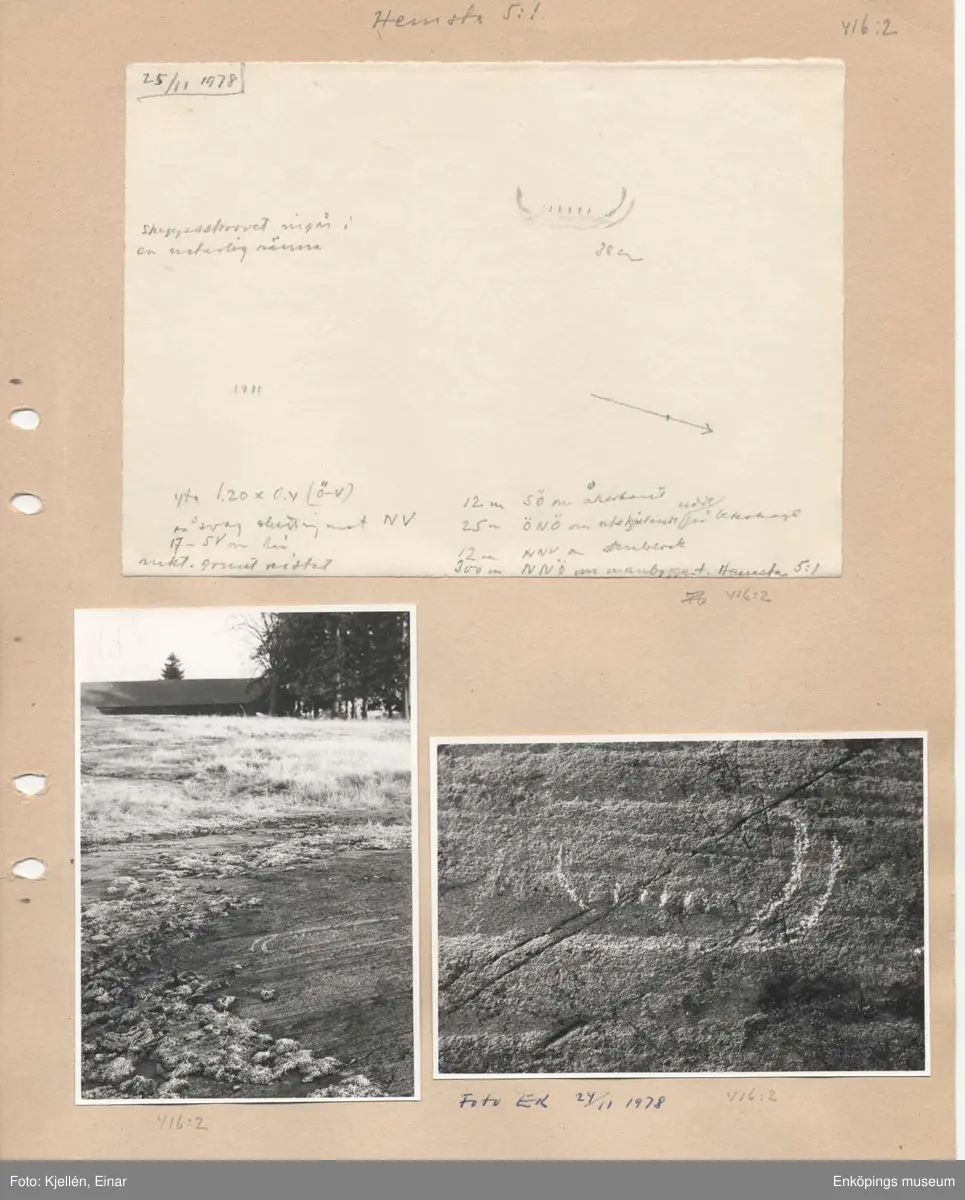 Hemsta 5:1
Y16:2
25/11 1978
Skeppsskrovet ingår i
en naturlig ränna
38 cm
yta 1.20 x 0.4 (Ö-V)
på svag sluttning mot NV
mkt. grunt ristat
12 m SÖ om åkerkant
25 m ÖNÖ om utskjutande udde på
12 m NNV om stenblock
300 m NNÖ om manbyggn. t. Hemsta 5:1
Y16:2
Y16:2
Foto EK 24/11 1978
Y16:2
Foto: Kjellén, Einar
Enköpings museum